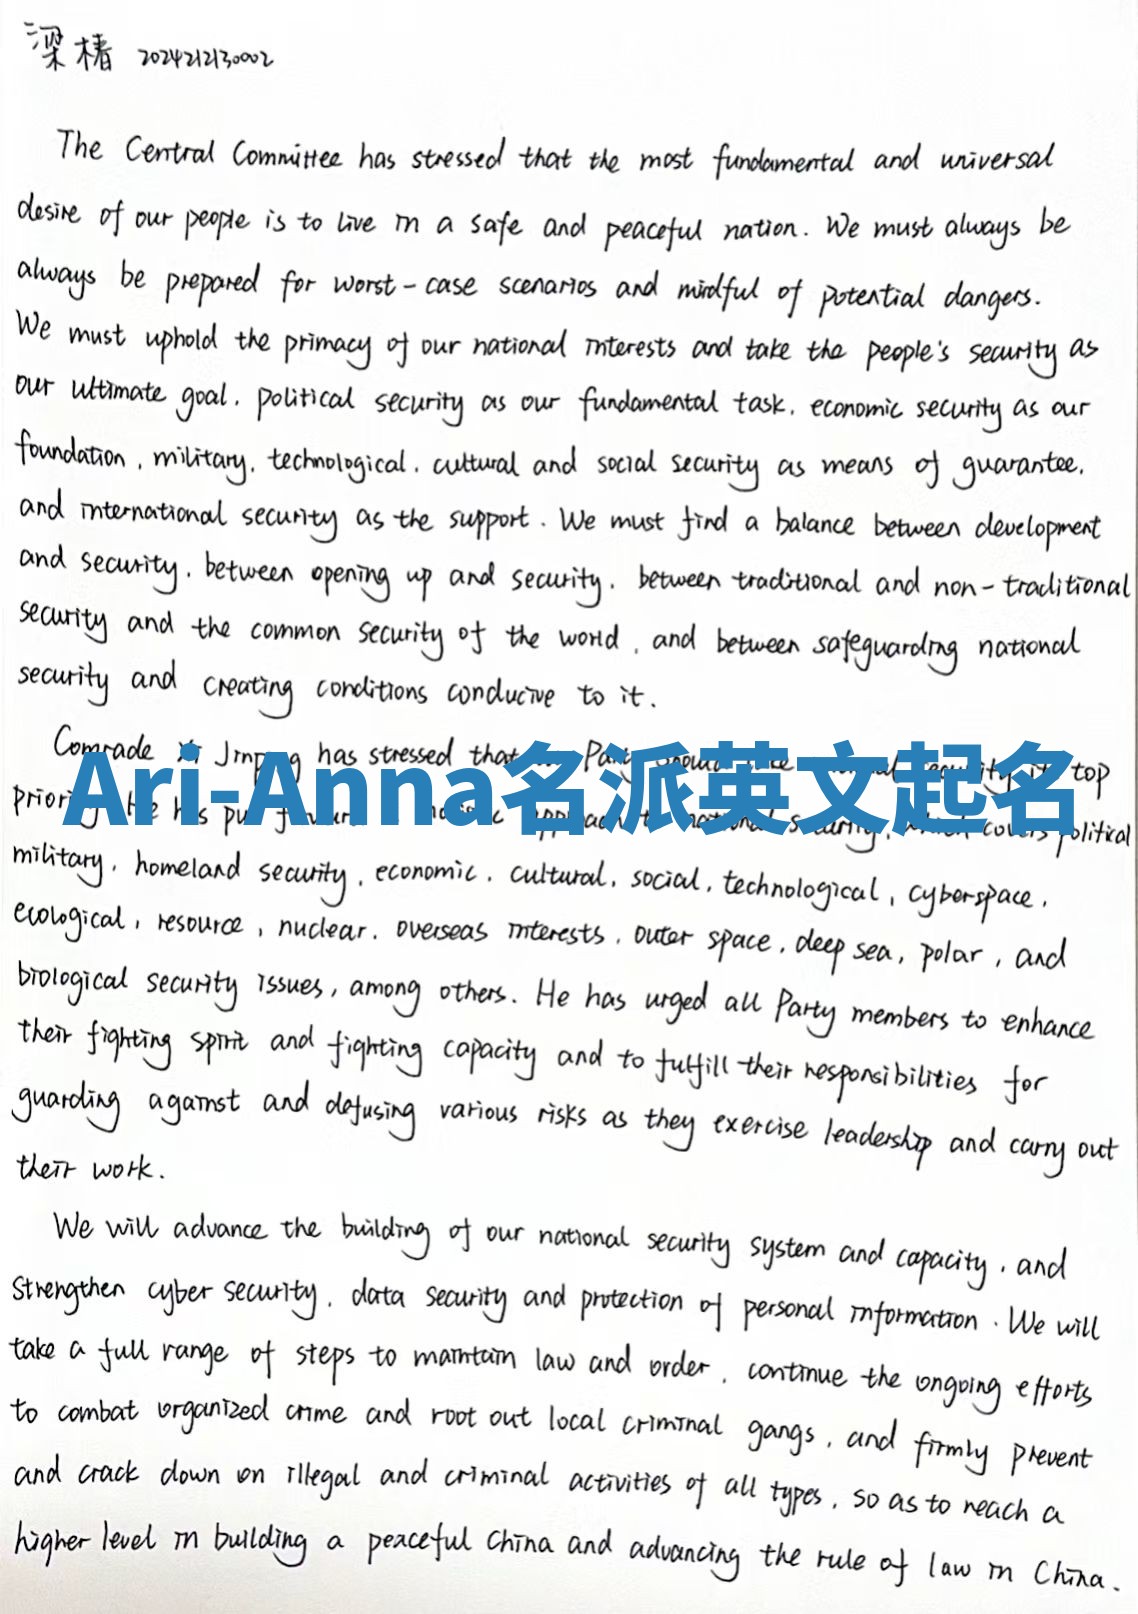 梁椿 2024212130002
The Central Committee has stressed that the most fundamental and universal
desire of our people is to live in a safe and peaceful nation. We must always be
always be prepared for worst-case scenarios and mindful of potential dangers.
We must uphold the primacy of our national interests and take the people's security as
our ultimate goal, political security as our fundamental task, economic security as our
foundation, military, technological, cultural and social security as means of guarantee,
and international security as the support. We must find a balance between development
and security, between opening up and security, between traditional and non-traditional
security and the common security of the world, and between safeguarding national
security and creating conditions conducive to it.
Comrade Xi Jinping has stressed that Party should top
Ari-Anna名派英文起名
priority He has put national security, which covers political
military, homeland security, economic, cultural, social, technological, cyberspace,
ecological, resource, nuclear, overseas interests, outer space, deep sea, polar, and
biological security issues, among others. He has urged all Party members to enhance
their fighting spirit and fighting capacity and to fulfill their responsibilities for
guarding against and defusing various risks as they exercise leadership and carry out
their work.
We will advance the building of our national security system and capacity, and
strengthen cyber security, data security and protection of personal information. We will
take a full range of steps to maintain law and order, continue the ongoing efforts
to combat organized crime and root out local criminal gangs, and firmly prevent
and crack down on illegal and criminal activities of all types, so as to reach a
higher level in building a peaceful China and advancing the rule of law in China.